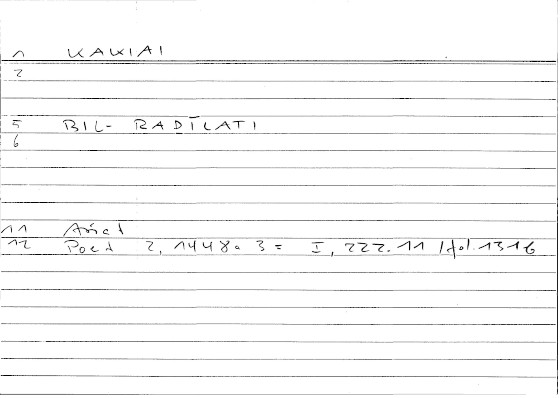 1 KAKIAI
2
5 BIL- RADĪLATI
6
11 Arist
12 Poet 2, 1448a 3 = I, 222.11 /fol. 131b